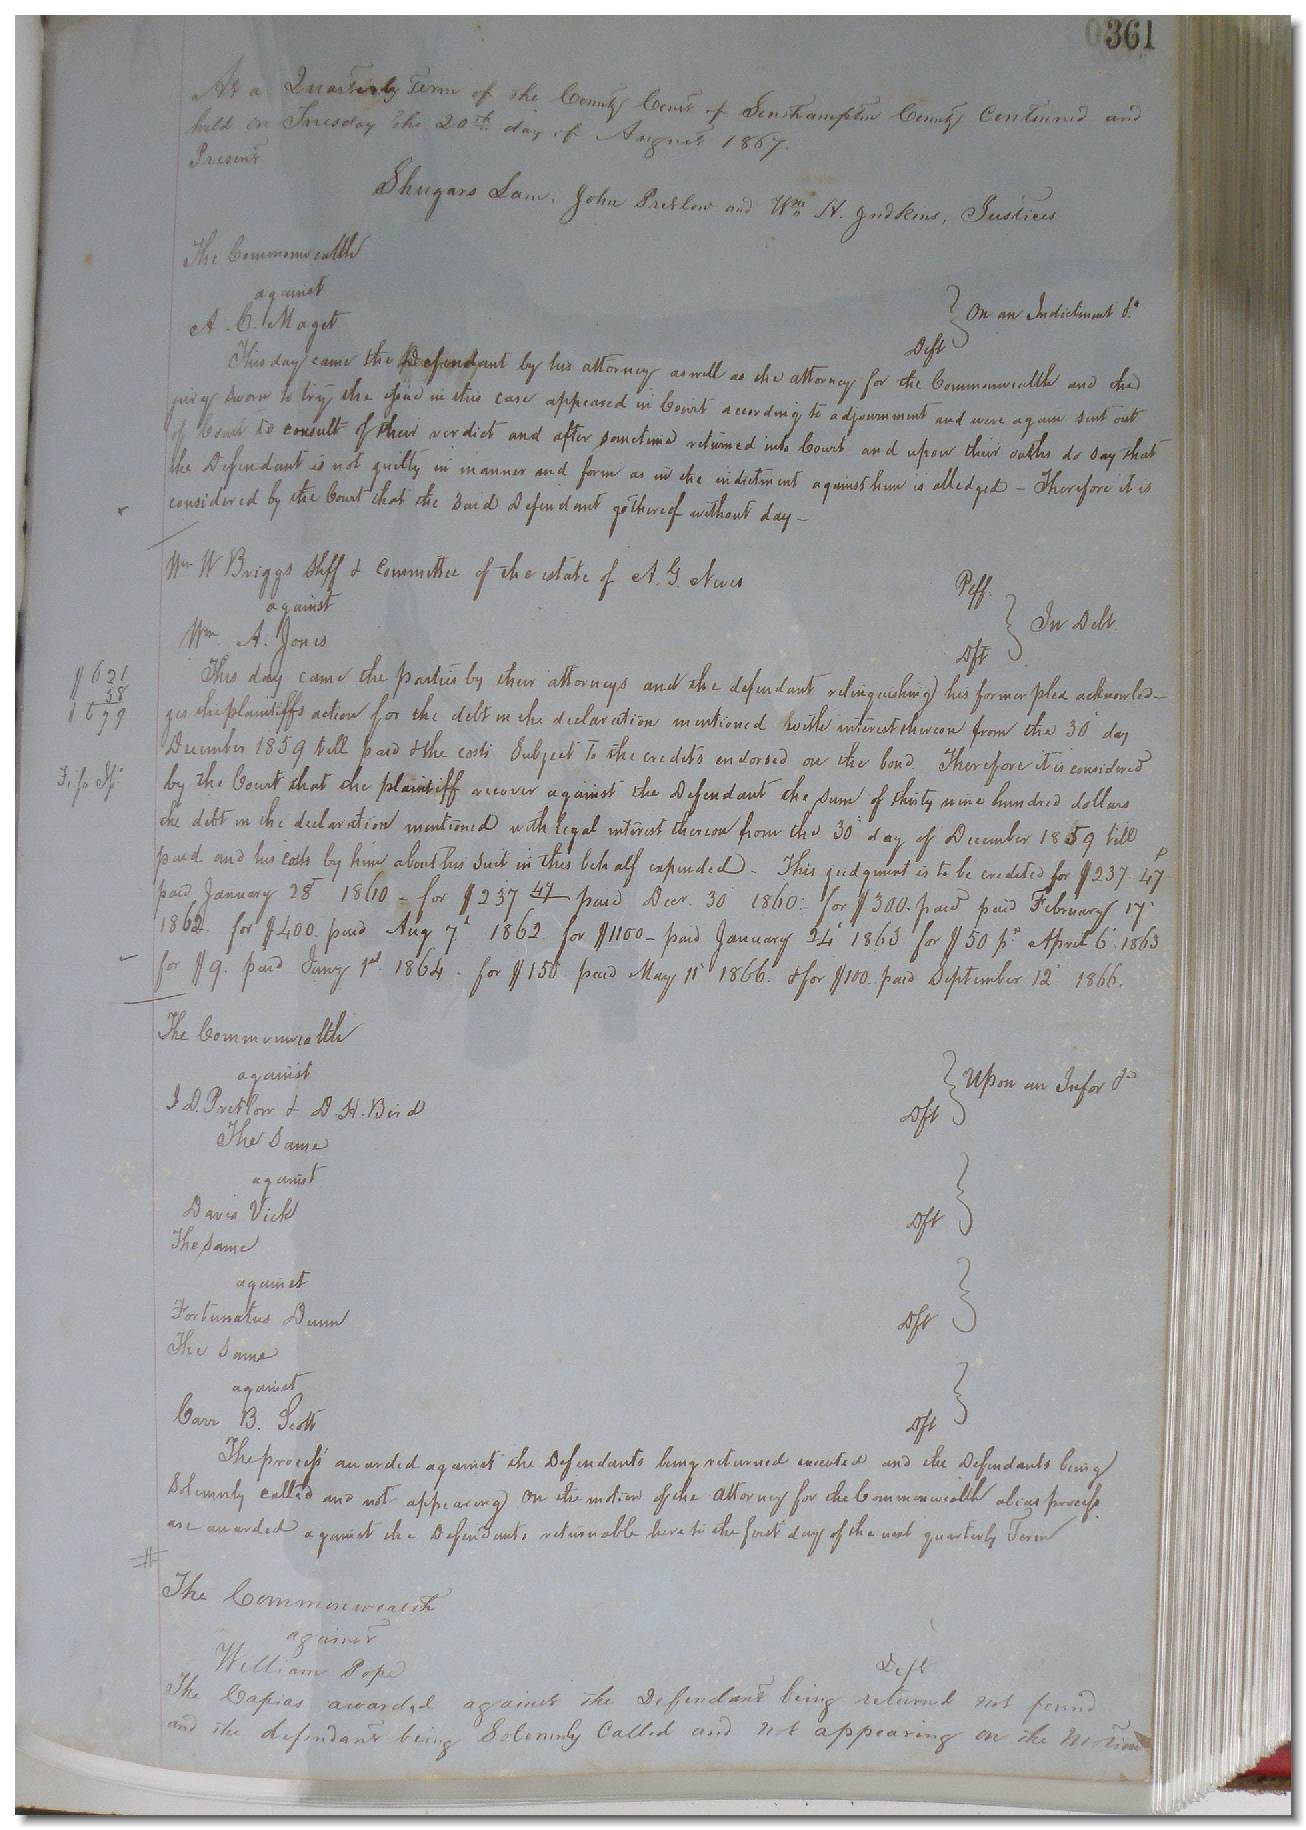 0361
At a Quarterly Term of the County Court of Southampton County Continued and
held on Tuesday the 20th day of August 1867.
Present
Shugars Lain, John Pretlow and Wm H. Judkins, Justices
The Commonwealth
against
A. C. Maget Deft } On an Indictment &c
This day came the Defendant by his attorney as well as the attorney for the Commonwealth and the
jury sworn to try the issue in this case appeared in Court according to adjournment and were again sent out
of Court to consult of their verdict and after sometime returned into Court and upon their oaths do say that
the Defendant is not guilty in manner and form as in the indictment against him is alledged – Therefore it is
considered by the Court that the said Defendant go thereof without day –
Wm W Briggs Shff & Committee of the estate of A. G. Plff.
against } In Debt.
Wm A. Jones Dft
This day came the parties by their attorneys and the defendant relinquishing his former plea acknowled-
ges the plaintiffs action for the debt in the declaration mentioned with interest thereon from the 30 day
December 1859 till paid & the costs Subject to the credits endorsed on the bond. Therefore it is considered
by the Court that the plaintiff recover against the Defendant the sum of thirty nine hundred dollars
the debt in the declaration mentioned with legal interest thereon from the 30 day of December 1859 till
paid and his costs by him about his suit in this behalf expended – This judgment is to be credited for $237.47
paid January 28 1860 – for $237 47 paid Decr. 30 1860 – for $300. paid paid February 17
1862. for $400. paid Aug 7 1862 for $1100 – paid January 24 1863 for $50 pd April 6 1863
for $9. paid Jany 1st 1864 – for $150 paid May 11 1866. & for $100. paid September 12 1866.
$621
58
$679
The Commonwealth
against } Upon an Infor &c
J. D. Pretlow & D. H. Bird Dft
The Same
against }
Davis Vick Dft
The same
against }
Fortunatus Dunn Dft
The Same
against }
Carr B. Scott Dft
The process awarded against the Defendants being returned executed and the Defendants being
Solemnly called and not appearing On the motion of the Attorney for the Commonwealth alias process
are awarded against the Defendants returnable here to the first day of the next quarterly Term
The Commonwealth
against
William Pope Deft
The Capias awarded against the Defendant being returned not found
and the defendant being Solemnly Called and not appearing on the Motion